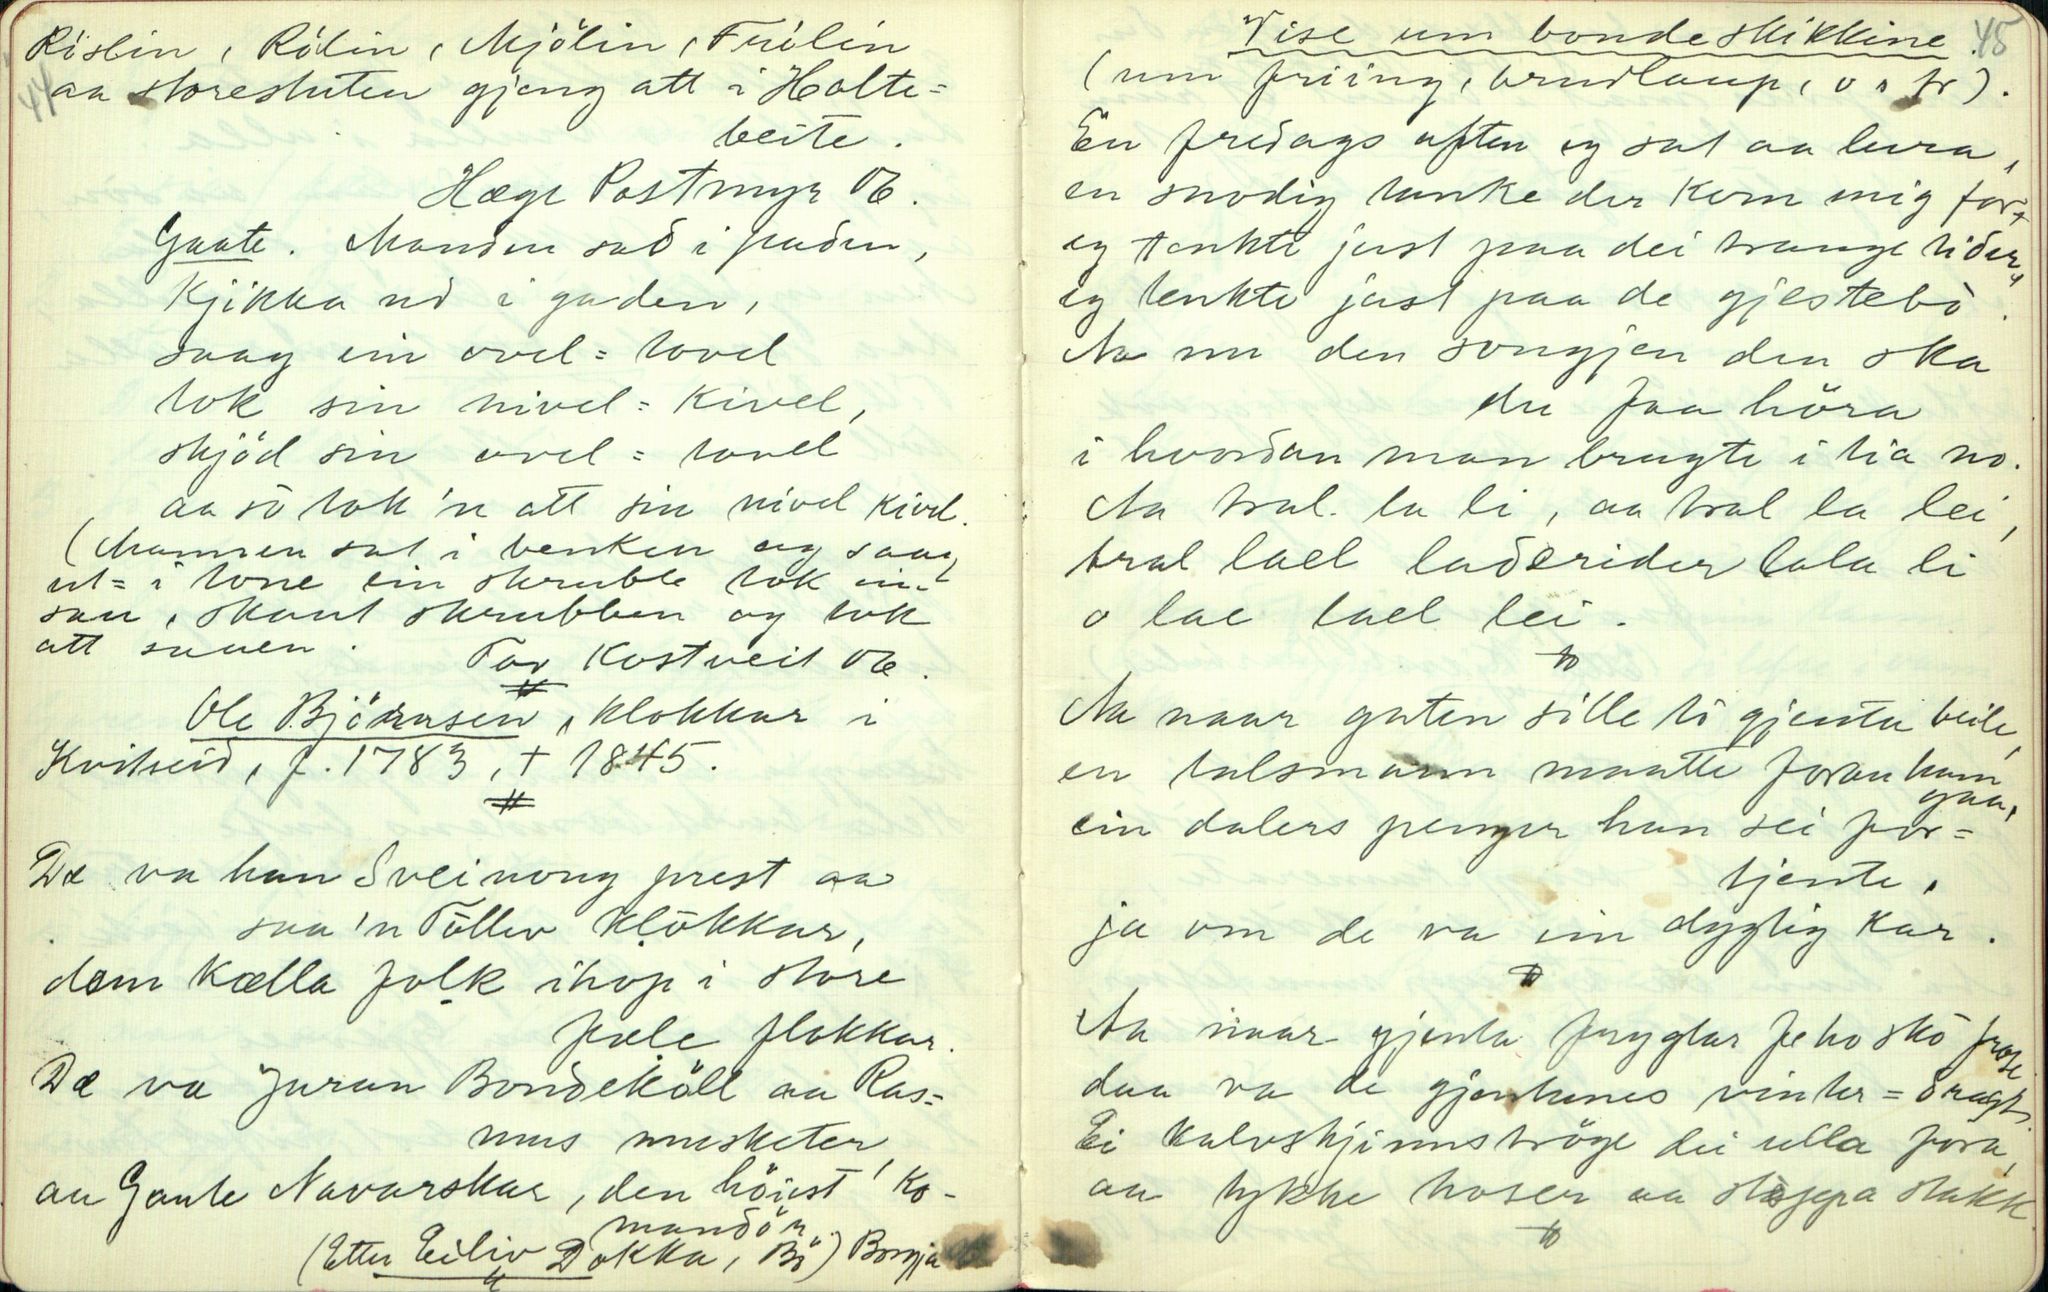 44
Rislin, Rilin, Mjölin, Frilin
aa storesluten gjeng att i Holte=
beite.
Hæge Postmyr 06.
Gaate. Manden sad i paden,
Kjikka ud i gaden,
saag ein ovel=tovel
tok sin nivel=Kivel,
skjöd sin ovel=tovel
aa sò tok'n att sin nivel Kivel.
(Mannen sat i benken og saag
ut=i tone ein skrubb tok ein
saa, skaut skrubben og tok
att sauen.
Tor Kostveit 06.
Ole Björnsen, Klokkar i
Kvitseid, f. 1783, + 1845.
De va han Sveinong prest aa
saa'n Töllev Klökkar,
dem Kælla folk ihop i store
fæle flokkar.
De va Juran Bondeköll aa Ras=
mus musketer,
aa Gaute Navarskar, den höiest Ko-
mandör.
(Etter Eiliv Dokka, Bö) Borgja
45
Vise um bondeskikkine.
(um friing, brudlaup, o. fr).
En fredags aften eg sat aa lura,
en snodig tanke der Kom mig for,
eg tenkte just paa dei trange tider,
eg tenkte just paa de gjestebò.
Aa nu den songjen den ska
du faa höra
i hvordan man brugte i tia no.
Aa tral la li, aa tral la lei,
tral lael laderider lala li
o lae lael lei.
Aa naar guten sille te gjenta beile,
en talsmann maatte foran ham
gaa,
ein dalers penger han sei for=
tjente,
ja om de va ein dygtig Kar.
Aa naar gjenta frygtar fe ho skò frøse
daa va de gjentunes vinter=dragt.
Ei Kalvskjinnströge dei ulla fora,
aa tykke hoser aa stsppa stakk